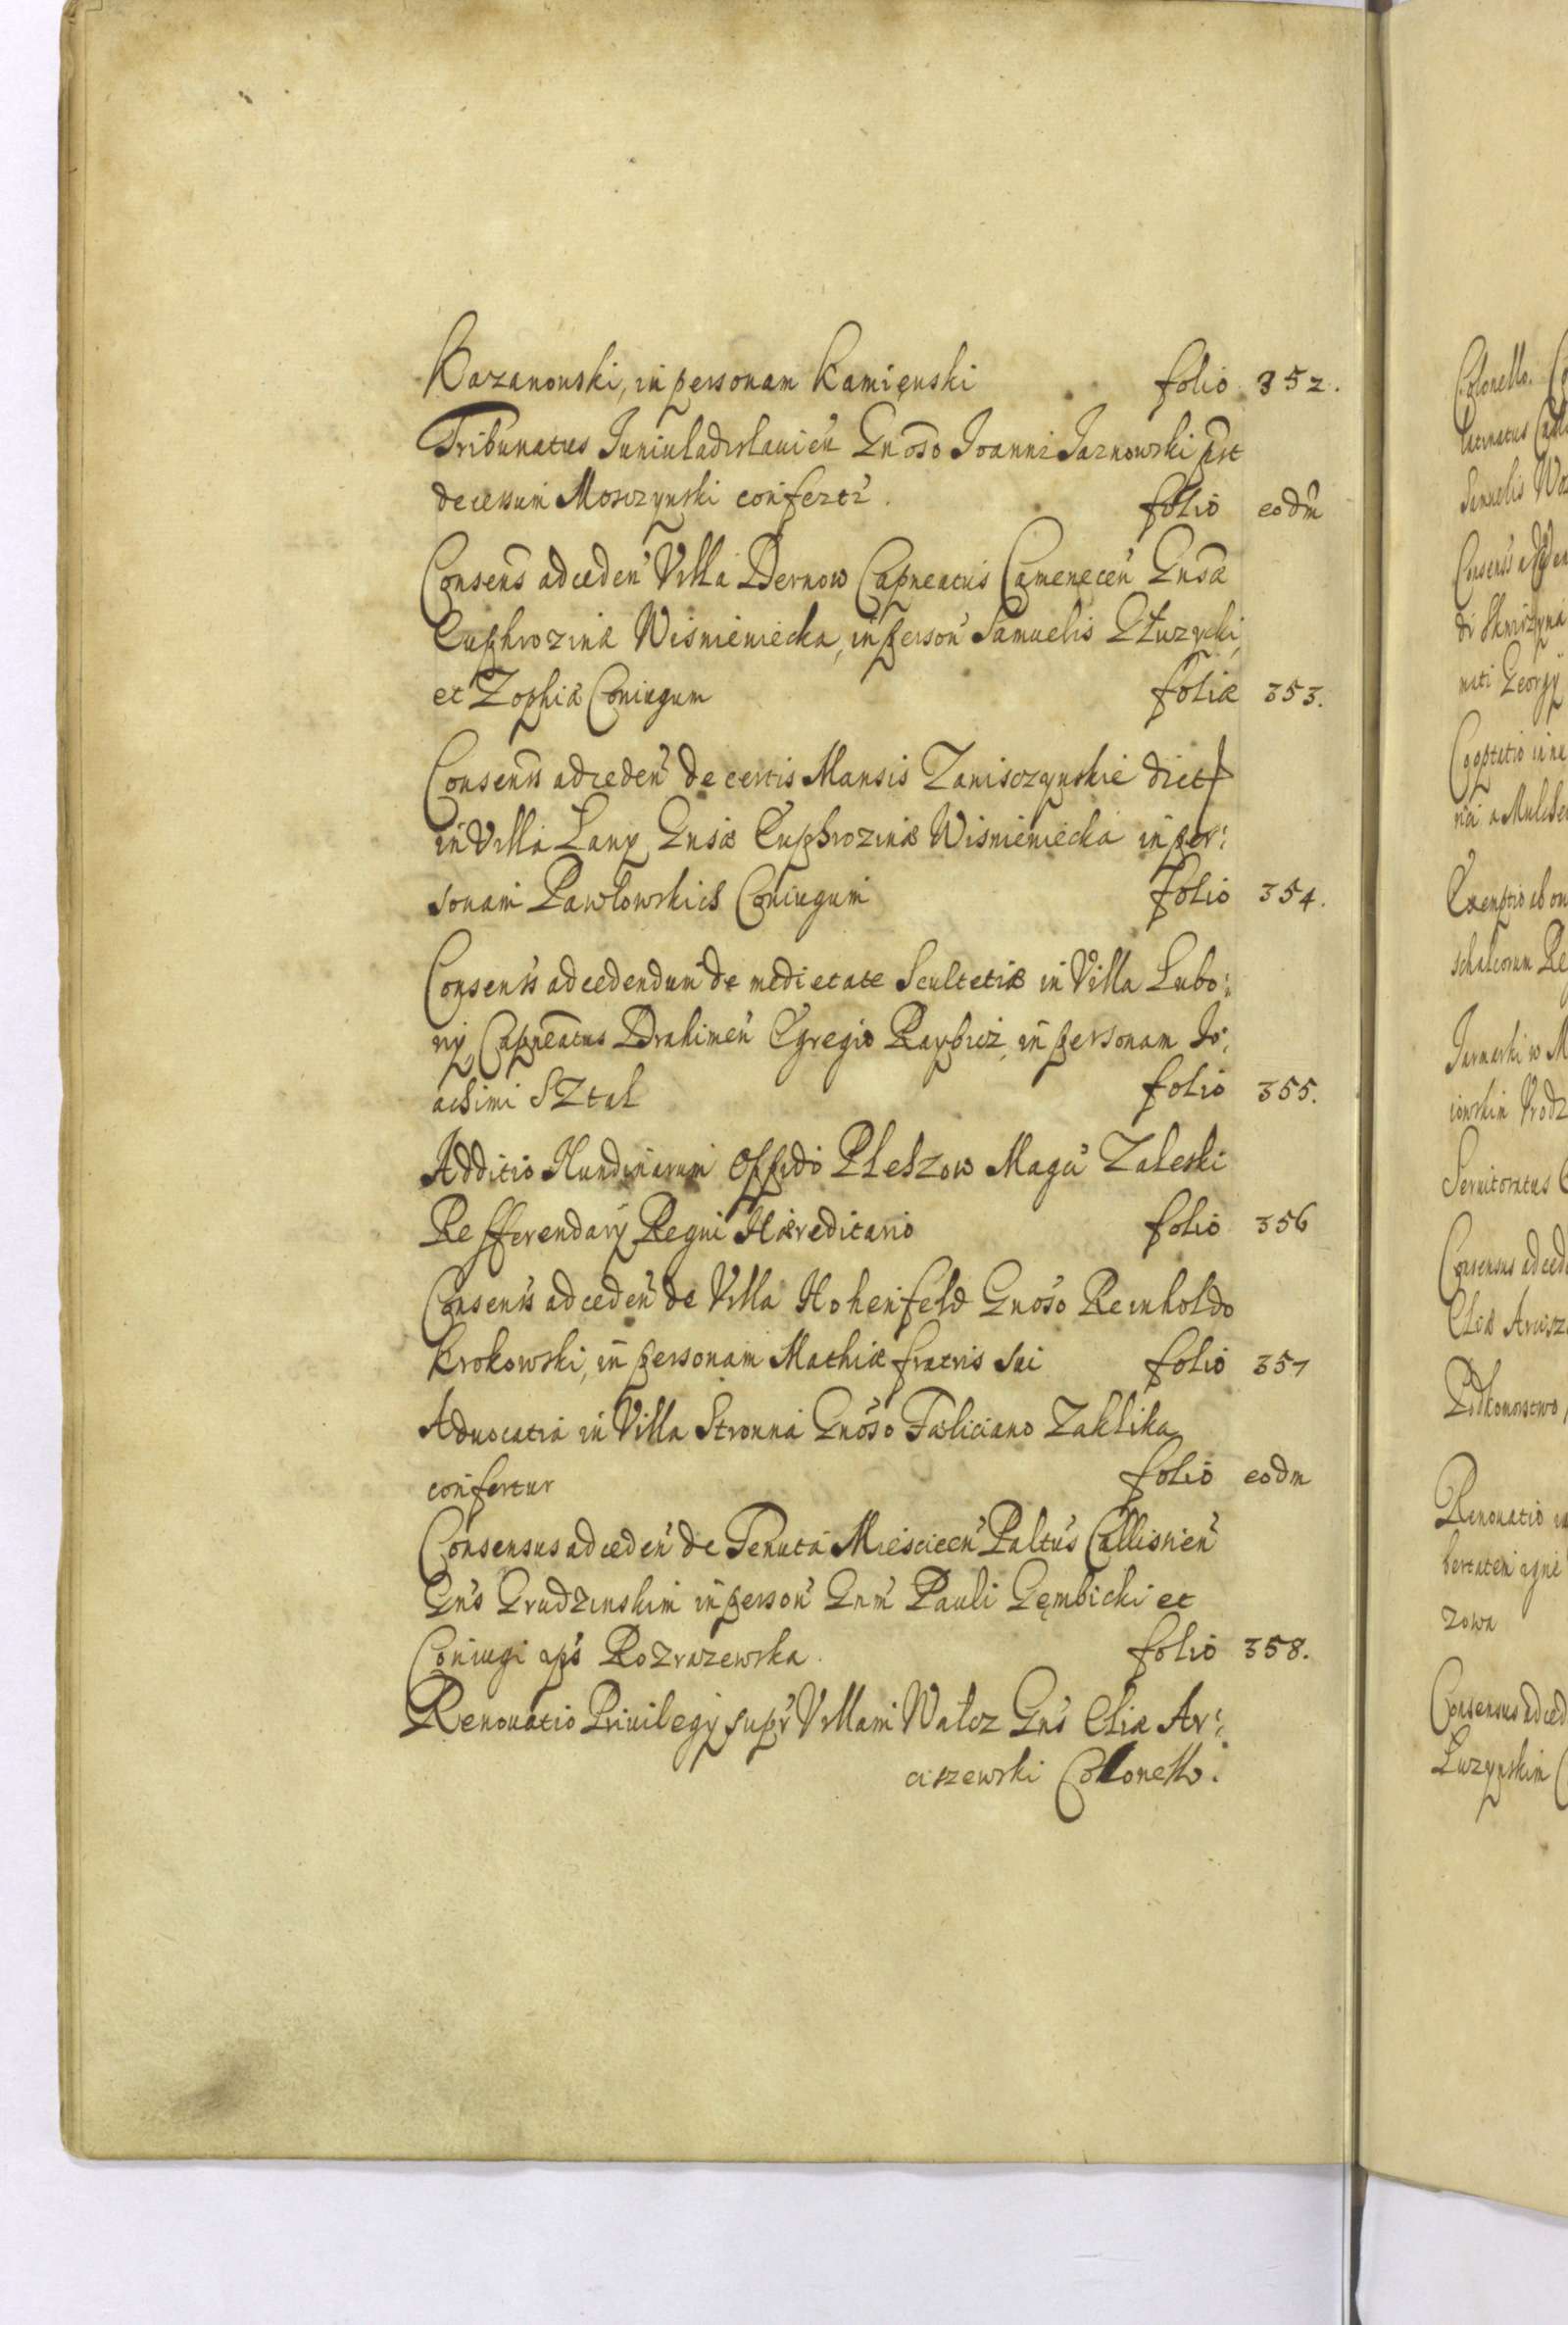 Kazanowski, in personam Kamięnski folio 352.
Tribunatus Juniuladislauień Gnoso Joanni Jaznowski post
decessum Mosczynski confertr. folio eodm
Consens ad ceden Villa Dernow Capneatus Camenecen Gnsa
Euphrozina Wisnieniecka, in person Samuelis Dłuzycki,
et Zophia Coniugum folia 353.
Consenss ad ceden de certis Mansis Zanisczynskie dict
in Villa Lany Gnsæ Euphrozinæ Wisnieniecka in per:
sonam Pawłowskich Coniugum folio 354.
Consenss ad cedendum de medietate Scultetiæ in Villa Lubo:
ny Capneatus Drahimen Egregio Raybicz, in personam Jo:
achimi SZtal folio 355.
Additio Nundinarum Oppido Pleszow Magco Zaleski
Refferendary Regni Hæreditario folio 356
Consenss ad ceden de Villa Hohenfeld Gnoso Reinholdo
Krokowski, in personam Mathiæ fratris sui folio 357
Aduocatia in Villa Stronna Gnoso Fæliciano Zaklika
confertur folio eodm
Consensus ad ceden de Tenuta Miescicen Paltus Callisien
Gns Grudzinskim in person Gnm Pauli Gęmbicki et
Coniugi eps Rozrazewska. folio 358.
Renouatio Priuilegy supr Villam Wałcz Gns Eliæ Ar:
ciszewski Collonello.
Colonello.
latinatus
Samuelis
nati Georgy
Cooptatio
Exemptio ab
schalcorum
Jarmarki w
Seruitoratus
Consensus ad ced
Eliæ Arcisz
Podkomorstwo,
Renouatio
zowa
Consensus ad ced
Luzynskim